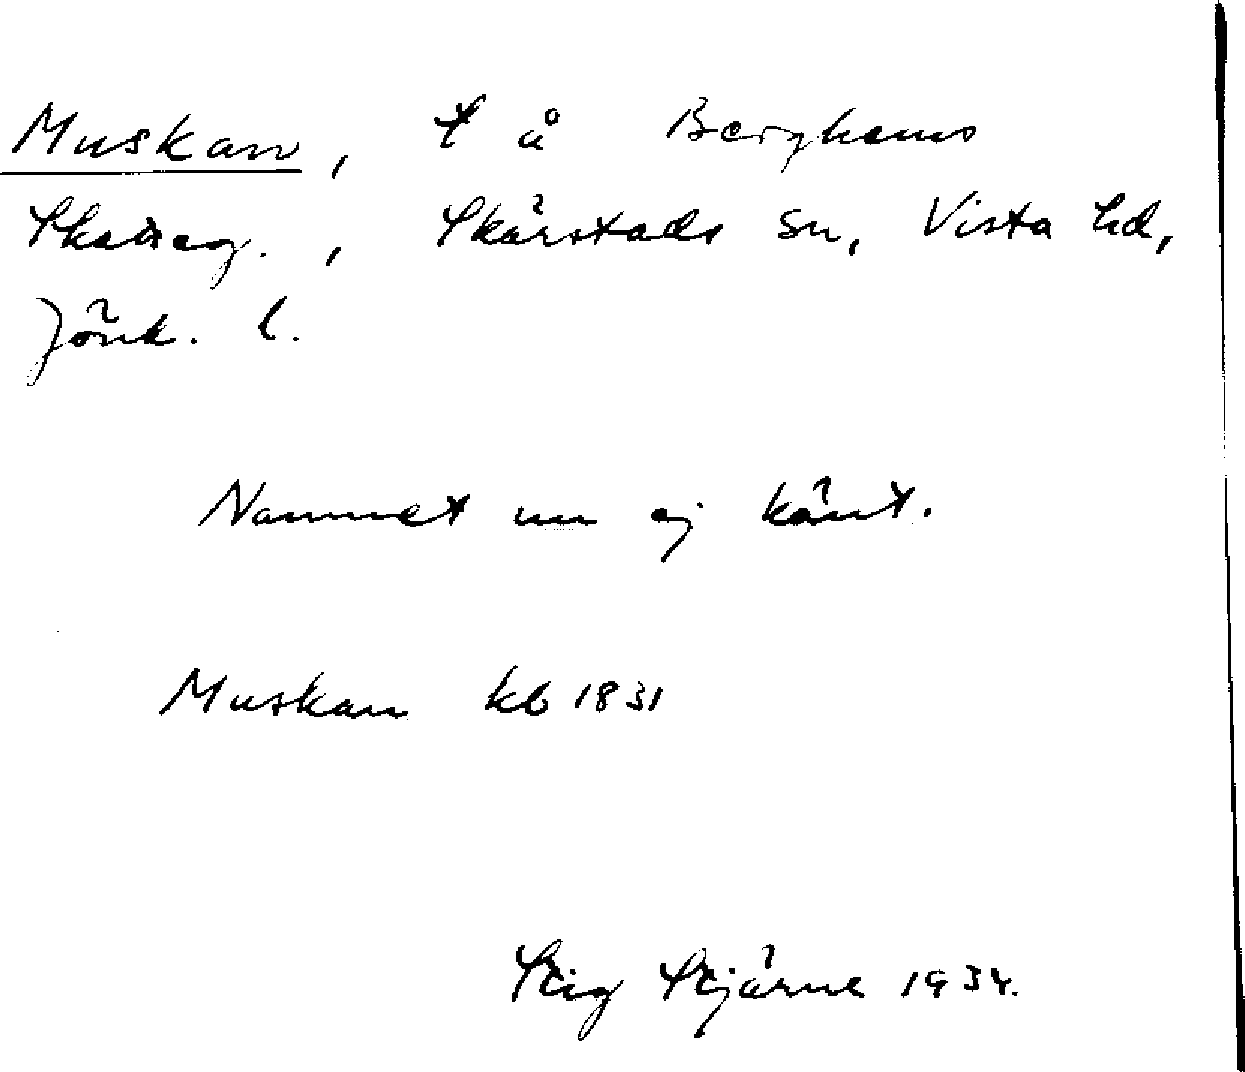 Muskan, t å Berghems
Skatteg., Skärstads sn, Vista hd,
Jönk. l.
Namnet nu ej känt.
Muskan kb 1831
Stig Stjärne 1934.